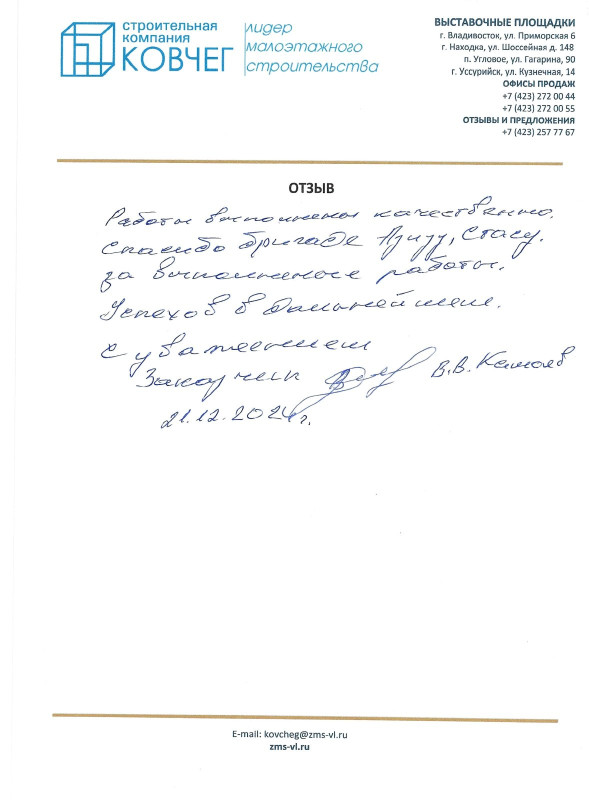 строительная
компания
КОВЧЕГ
лидер
малоэтажного
строительства
ВЫСТАВОЧНЫЕ ПЛОЩАДКИ
г. Владивосток, ул. Приморская 6
г. Находка, ул. Шоссейная д. 148
п. Угловое, ул. Гагарина, 90
г. Уссурийск, ул. Кузнечная, 14
ОФИСЫ ПРОДАЖ
+7 (423) 272 00 44
+7 (423) 272 00 55
ОТЗЫВЫ И ПРЕДЛОЖЕНИЯ
+7 (423) 257 77 67
ОТЗЫВ
Работы выполнены качественно.
Спасибо бригаде Азизу, Стасу.
за выполненые работы.
Успехов в дальнейшем.
С уважением
Заказчик В.В.
21.12.2024г.
E-mail: kovcheg@zms-vl.ru
zms-vl.ru